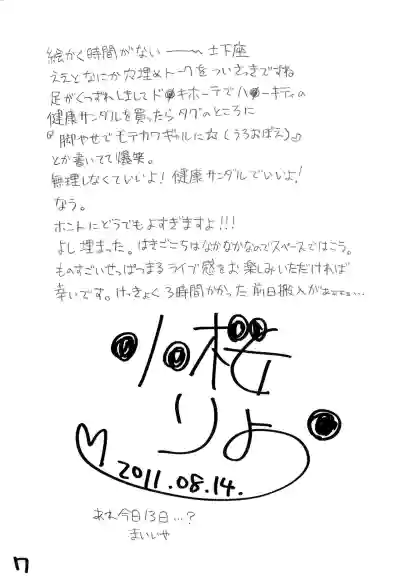 絵かく時間がない―――土下座
ええとなにか穴埋めトークを ついさっきですね
足がくつずれしましてド●キホーテでハ●ーキティの
健康サンダルを買ったらタグのところに
『脚やせでモテカワギャルに☆(うろおぼえ)』
とか書いてて爆笑。
無理しなくていいよ!健康サンダルでいいよ!
なう。
ホントにどうでもよすぎますよ!!!
よし埋まった。はきごこちはなかなかなのでスペースではこう。
ものすごいせっぱつまるライブ感をお楽しみいただければ
幸いです。けっきょく3時間かかった 前日搬入が
小桜
りよ
2011.08.14.
あれ今日13日…?
まいいや
17